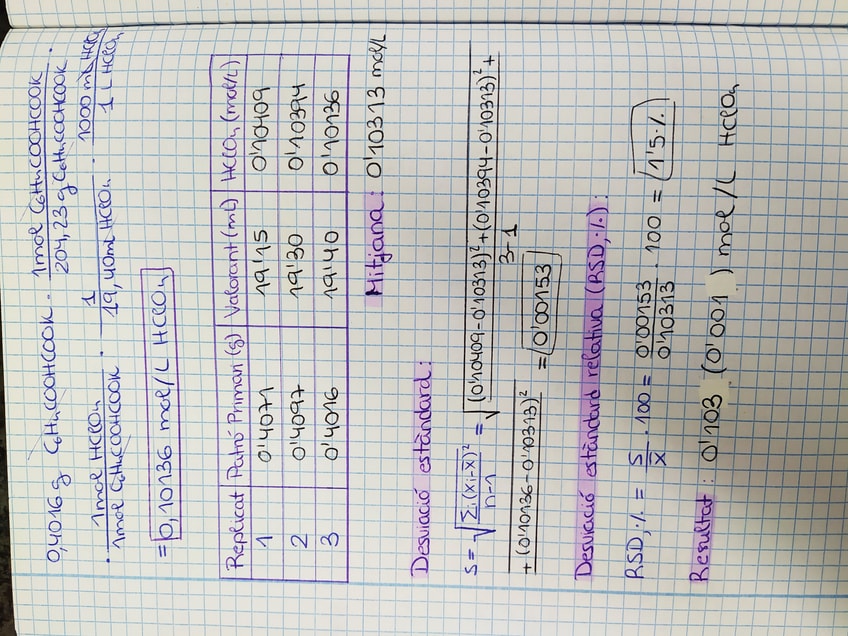 0,4016 g C6H4COOHCOOK · 1mol C6H4COOHCOOK / 204,23 g C6H4COOHCOOK ·
· 1mol HClO4 / 1mol C6H4COOHCOOK · 1 / 19,40mL HClO4 · 1000 mL HClO4 / 1 L HClO4
= 0,10136 mol/L HClO4
Replicat Patró Primari (g) Valorant (mL) HClO4 (mol/L)
1 0'4071 19'15 0'10409
2 0'4097 19'30 0'10394
3 0'4016 19'40 0'10136
Mitjana: 0'10313 mol/L
Desviació estàndard:
S = √(Σi (xi-x̄)² / n-1) = √((0'10409-0'10313)² + (0'10394-0'10313)² +
+ (0'10136-0'10313)² / 3-1) = 0'00153
Desviació estàndard relativa (RSD, %):
RSD, % = S / x̄ · 100 = 0'00153 / 0'10313 · 100 = 1'5 %
Resultat: 0'103 (0'001) mol/L HClO4